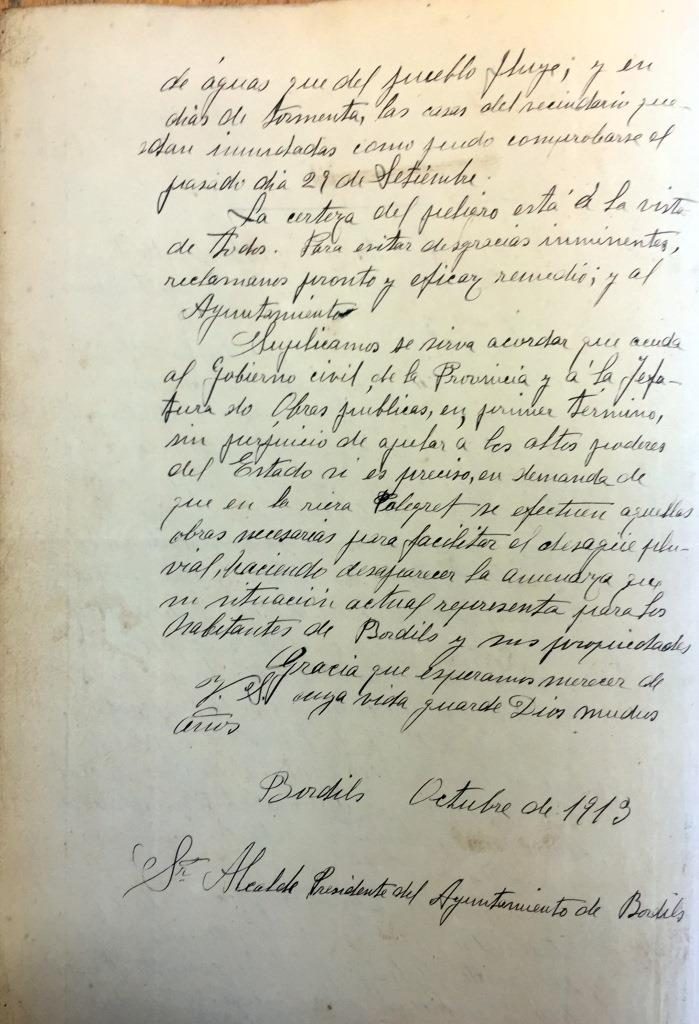 de águas que del pueblo fluye; y en
dias de tormenta, las casas del vecindario que-
dan inundadas como pudo comprobarse el
pasado dia 29 de Setiembre.
La certeza del peligro está á la vista
de todos. Para evitar desgracias inminentes,
reclamamos pronto y eficaz remedio; y al
Ayuntamiento
Suplicamos se sirva acordar que acuda
al Gobierno civil de la Provincia y á la Jefa-
tura de Obras públicas, en primer término,
sin perjuicio de apelar á los altos poderes
del Estado si es preciso, en demanda de
que en la riera Polegret se efectuen aquellas
obras necesarias para facilitar el desagüe plu-
vial, haciendo desaparecer la amenaza que
su situación actual representa para los
habitantes de Bordils y sus propiedades
Gracia que esperamos merecer de
V. S. cuya vida guarde Dios muchos
años
Bordils Octubre de 1913
Sr. Alcalde Presidente del Ayuntamiento de Bordils